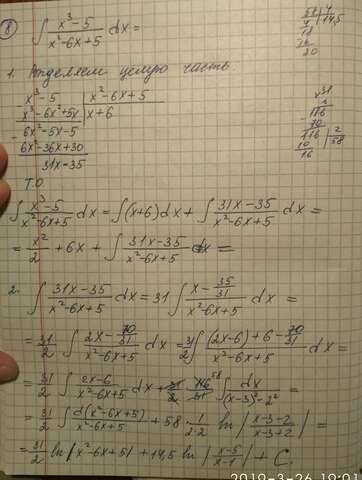 8 ∫ (x³-5)/(x²-6x+5) dx =
1. Отделяем целую часть
x³-5 | x²-6x+5
x³-6x²+5x | x+6
6x²-5x-5
6x²-36x+30
31x-35
Т.О.
∫ (x³-5)/(x²-6x+5) dx = ∫(x+6)dx + ∫ (31x-35)/(x²-6x+5) dx =
= x²/2 + 6x + ∫ (31x-35)/(x²-6x+5) dx =
2. ∫ (31x-35)/(x²-6x+5) dx = 31 ∫ (x - 35/31)/(x²-6x+5) dx =
= 31/2 ∫ (2x - 70/31)/(x²-6x+5) dx = 31/2 ∫ ((2x-6)+6 - 70/31)/(x²-6x+5) dx =
= 31/2 ∫ (2x-6)/(x²-6x+5) dx + 58 ∫ dx/((x-3)²-2²) =
= 31/2 ∫ d(x²-6x+5)/(x²-6x+5) + 58 · 1/(2·2) ln |(x-3-2)/(x-3+2)| =
= 31/2 ln|x²-6x+5| + 14,5 ln |(x-5)/(x-1)| + C.
2019-3-26 19:01